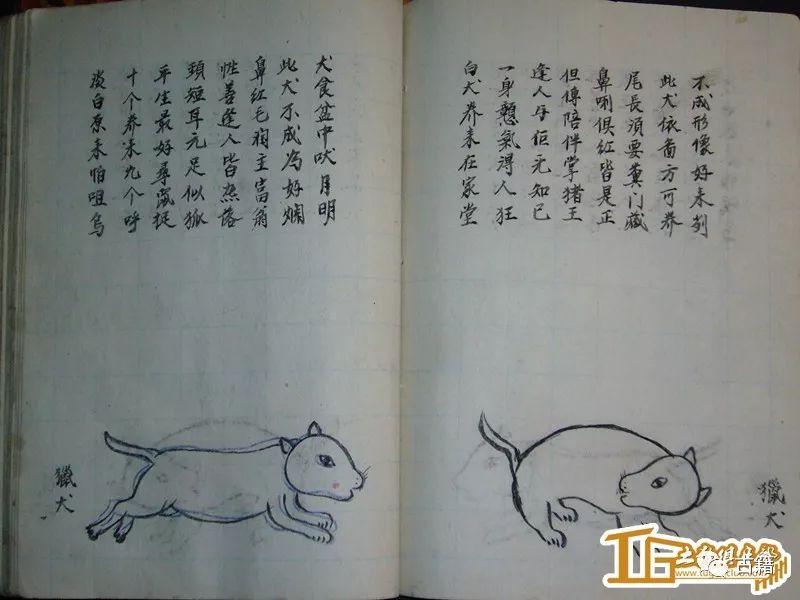 淡白原来怕咀乌
十个养来九个呼
平生最好尋鼠捉
頭短耳元足似狐
性善逢人皆热落
鼻红毛润主富翁
此犬不成為好嫻
犬食盆中吠月明
獵犬
白犬养来在家堂
一身憨氣得人狂
逢人 元知已
但傅陪伴掌猪王
鼻唎俱红皆是正
尾長須要糞门藏
此犬依啚方可养
不成形像好来
獵犬
古籍